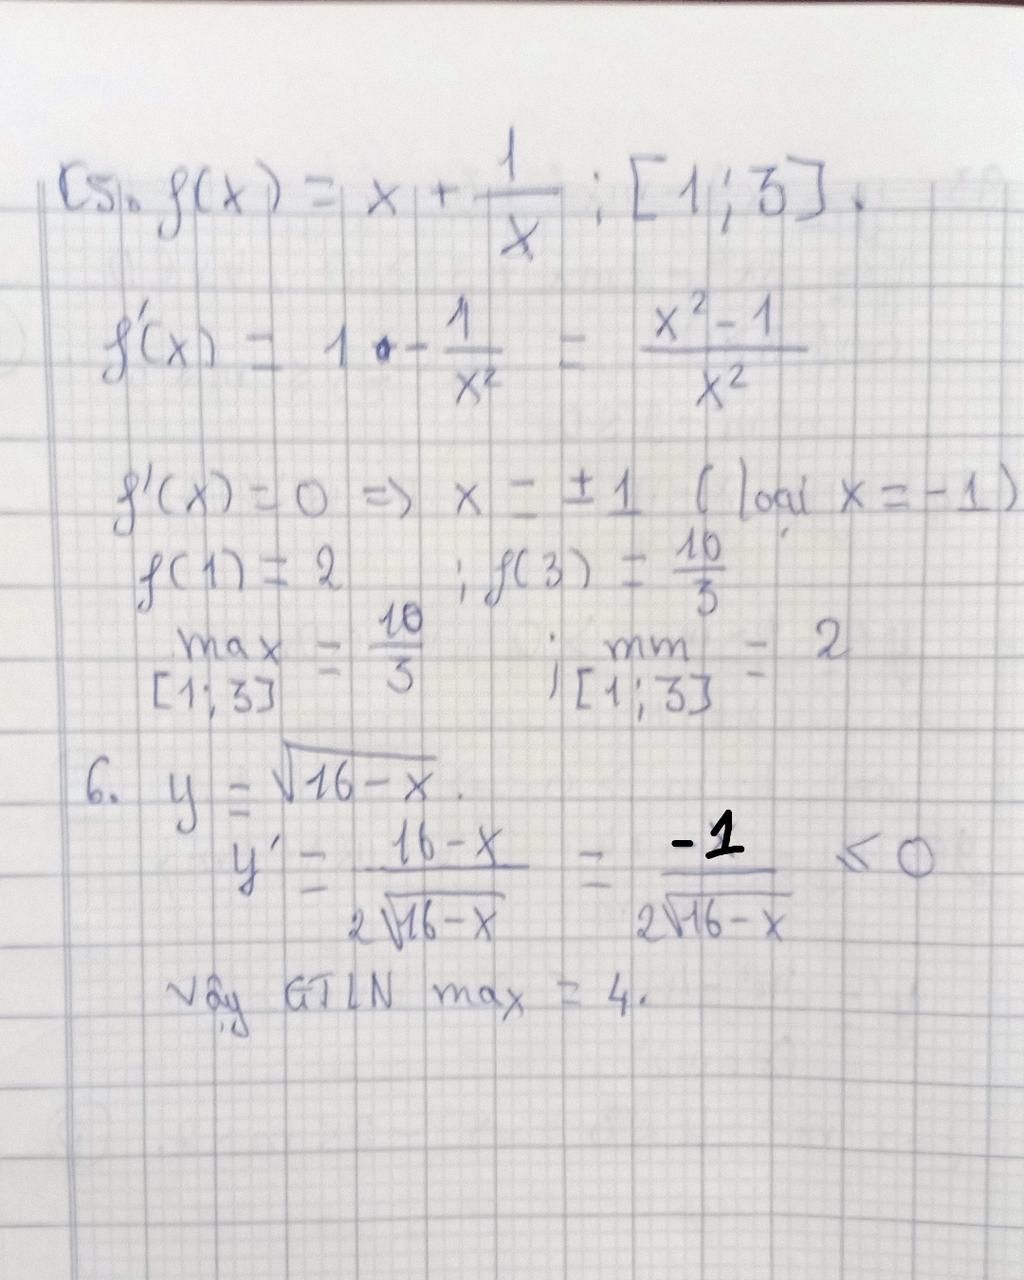 C5. f(x) = x + 1/x ; [1 ; 3].
f'(x) = 1 - 1/x² = x² - 1/x²
f'(x) = 0 => x = ± 1 (loại x = -1)
f(1) = 2 ; f(3) = 10/3
max = 10/3 ; min = 2
[1 ; 3] [1 ; 3]
6. y = √16 - x.
y' = 16 - x/2√16 - x = -1/2√16 - x < 0
Vậy GTLN max = 4.